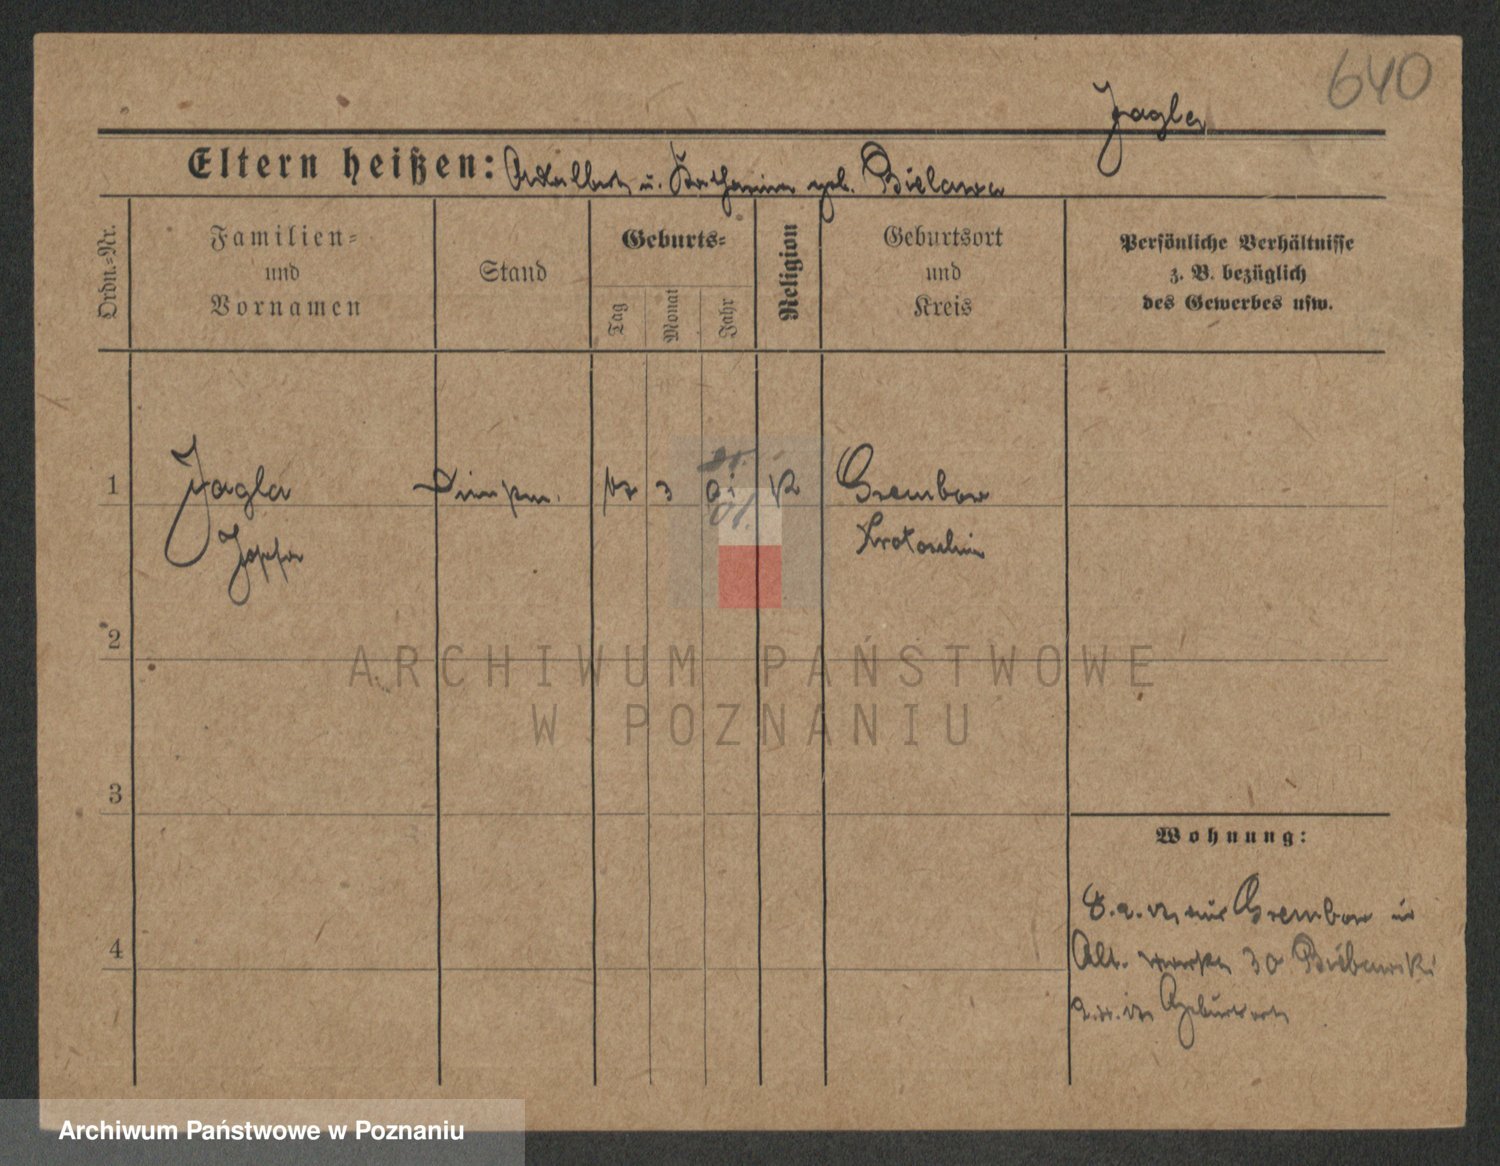 640
Jagla
Eltern heißen: Adalbert u. Katharina geb. Bielawa
Ordn.-Nr.
Familien-
und
Vornamen
Stand
Geburts-
Tag
Monat
Jahr
Religion
Geburtsort
und
Kreis
Persönliche Verhältnisse
z. B. bezüglich
des Gewerbes usw.
1
Jagla
3
K
Grembow
Josefa
Krotoschin
2
ARCHIWUM PAŃSTWOWE
W POZNANIU
3
Wohnung:
aus Grembow in
4
Alt. 30
Geburtsort
Archiwum Państwowe w Poznaniu